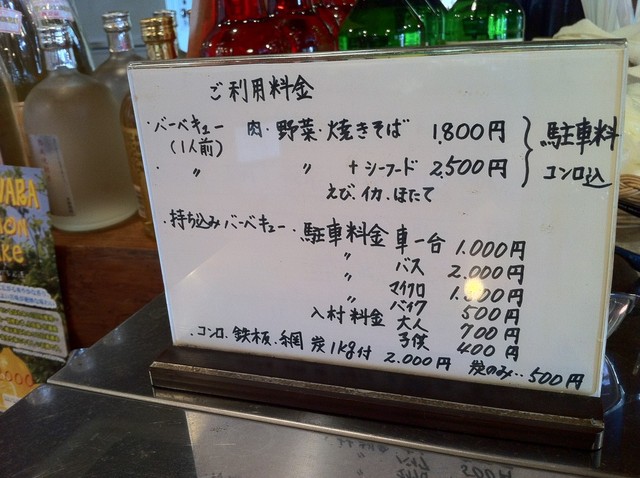 ご利用料金
・バーベキュー 肉・野菜・焼きそば 1.800円 駐車料
(1人前)
・ 〃 〃 +シーフード 2,500円 コンロ込
えび.イカ.ほたて
・持ち込みバーベキュー・駐車料金 車一台 1.000円
〃 バス 2.000円
〃 マイクロ
〃 バイク 500円
入村料金 大人 700円
子供 400円
・コンロ.鉄板.網 炭1kg付 2.000円 炭のみ…500円